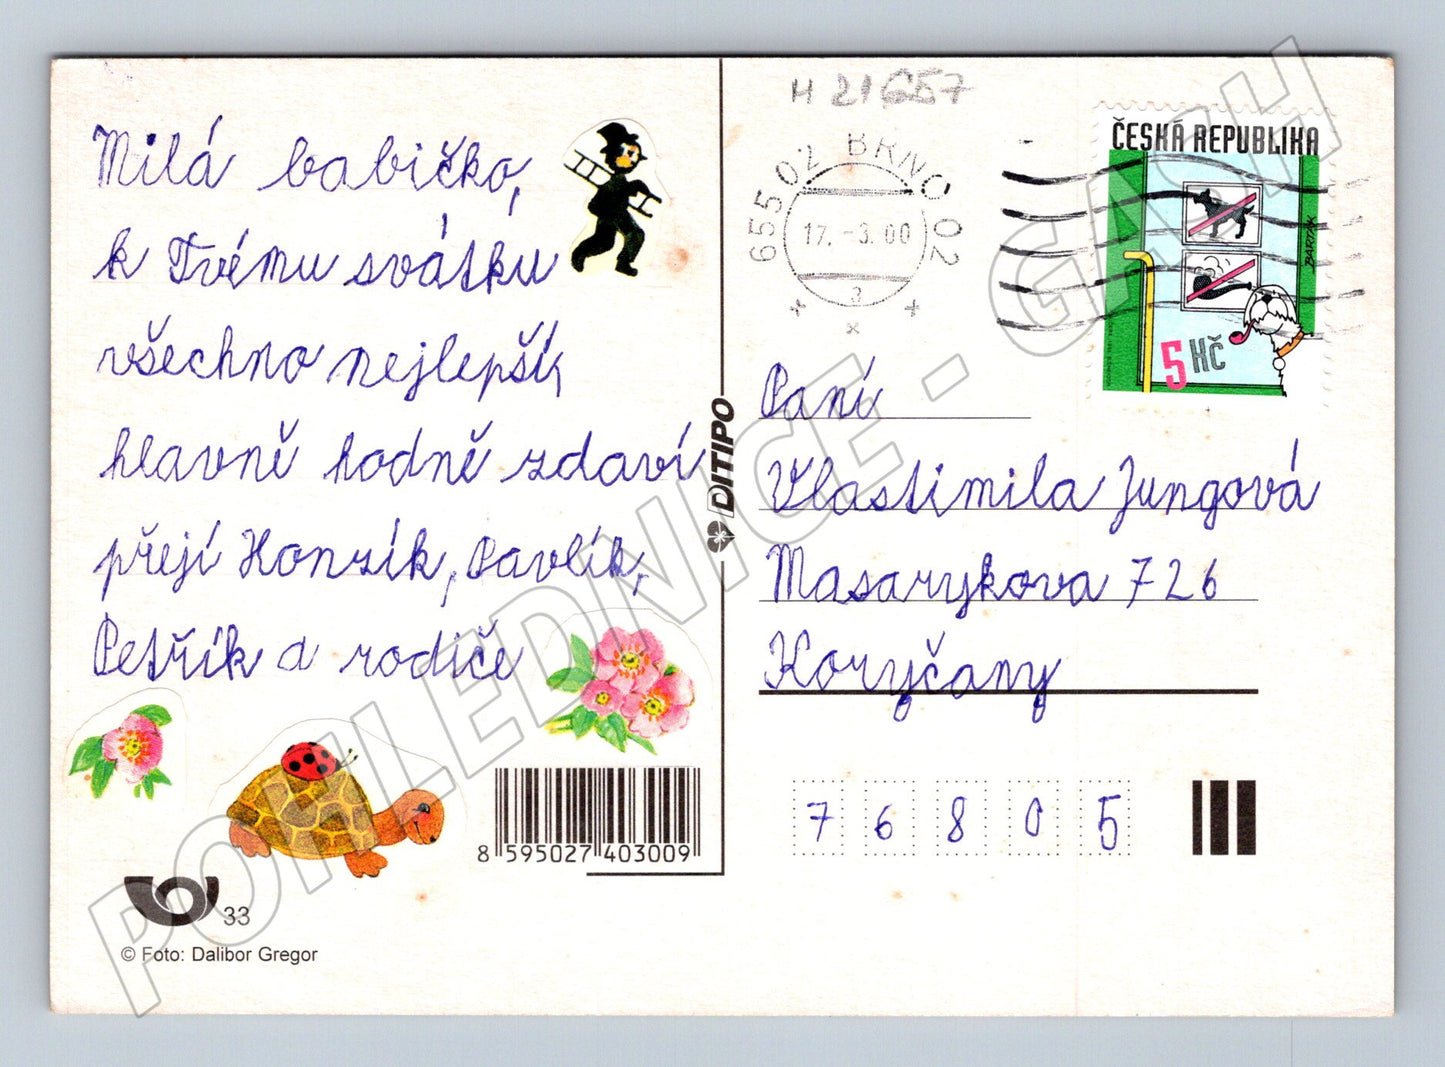 Milá babičko,
k Tvému svátku
všechno nejlepší,
hlavně hodně zdaví
přejí Honzík, Pavlík,
Petřík a rodiče
33
© Foto: Dalibor Gregor
8 595027 403009
DITIPO
H 21657
655 02 BRNO 02
17. -3. 00
3
ČESKÁ REPUBLIKA
BARTÁK
5 Kč
Paní
Vlastimila Jungová
Masarykova 726
Koryčany
7 6 8 0 5
POHLEDNICE - GASH